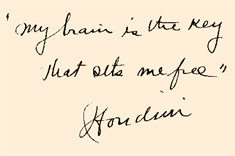 "my brain is the key
that sets me free"
Houdini